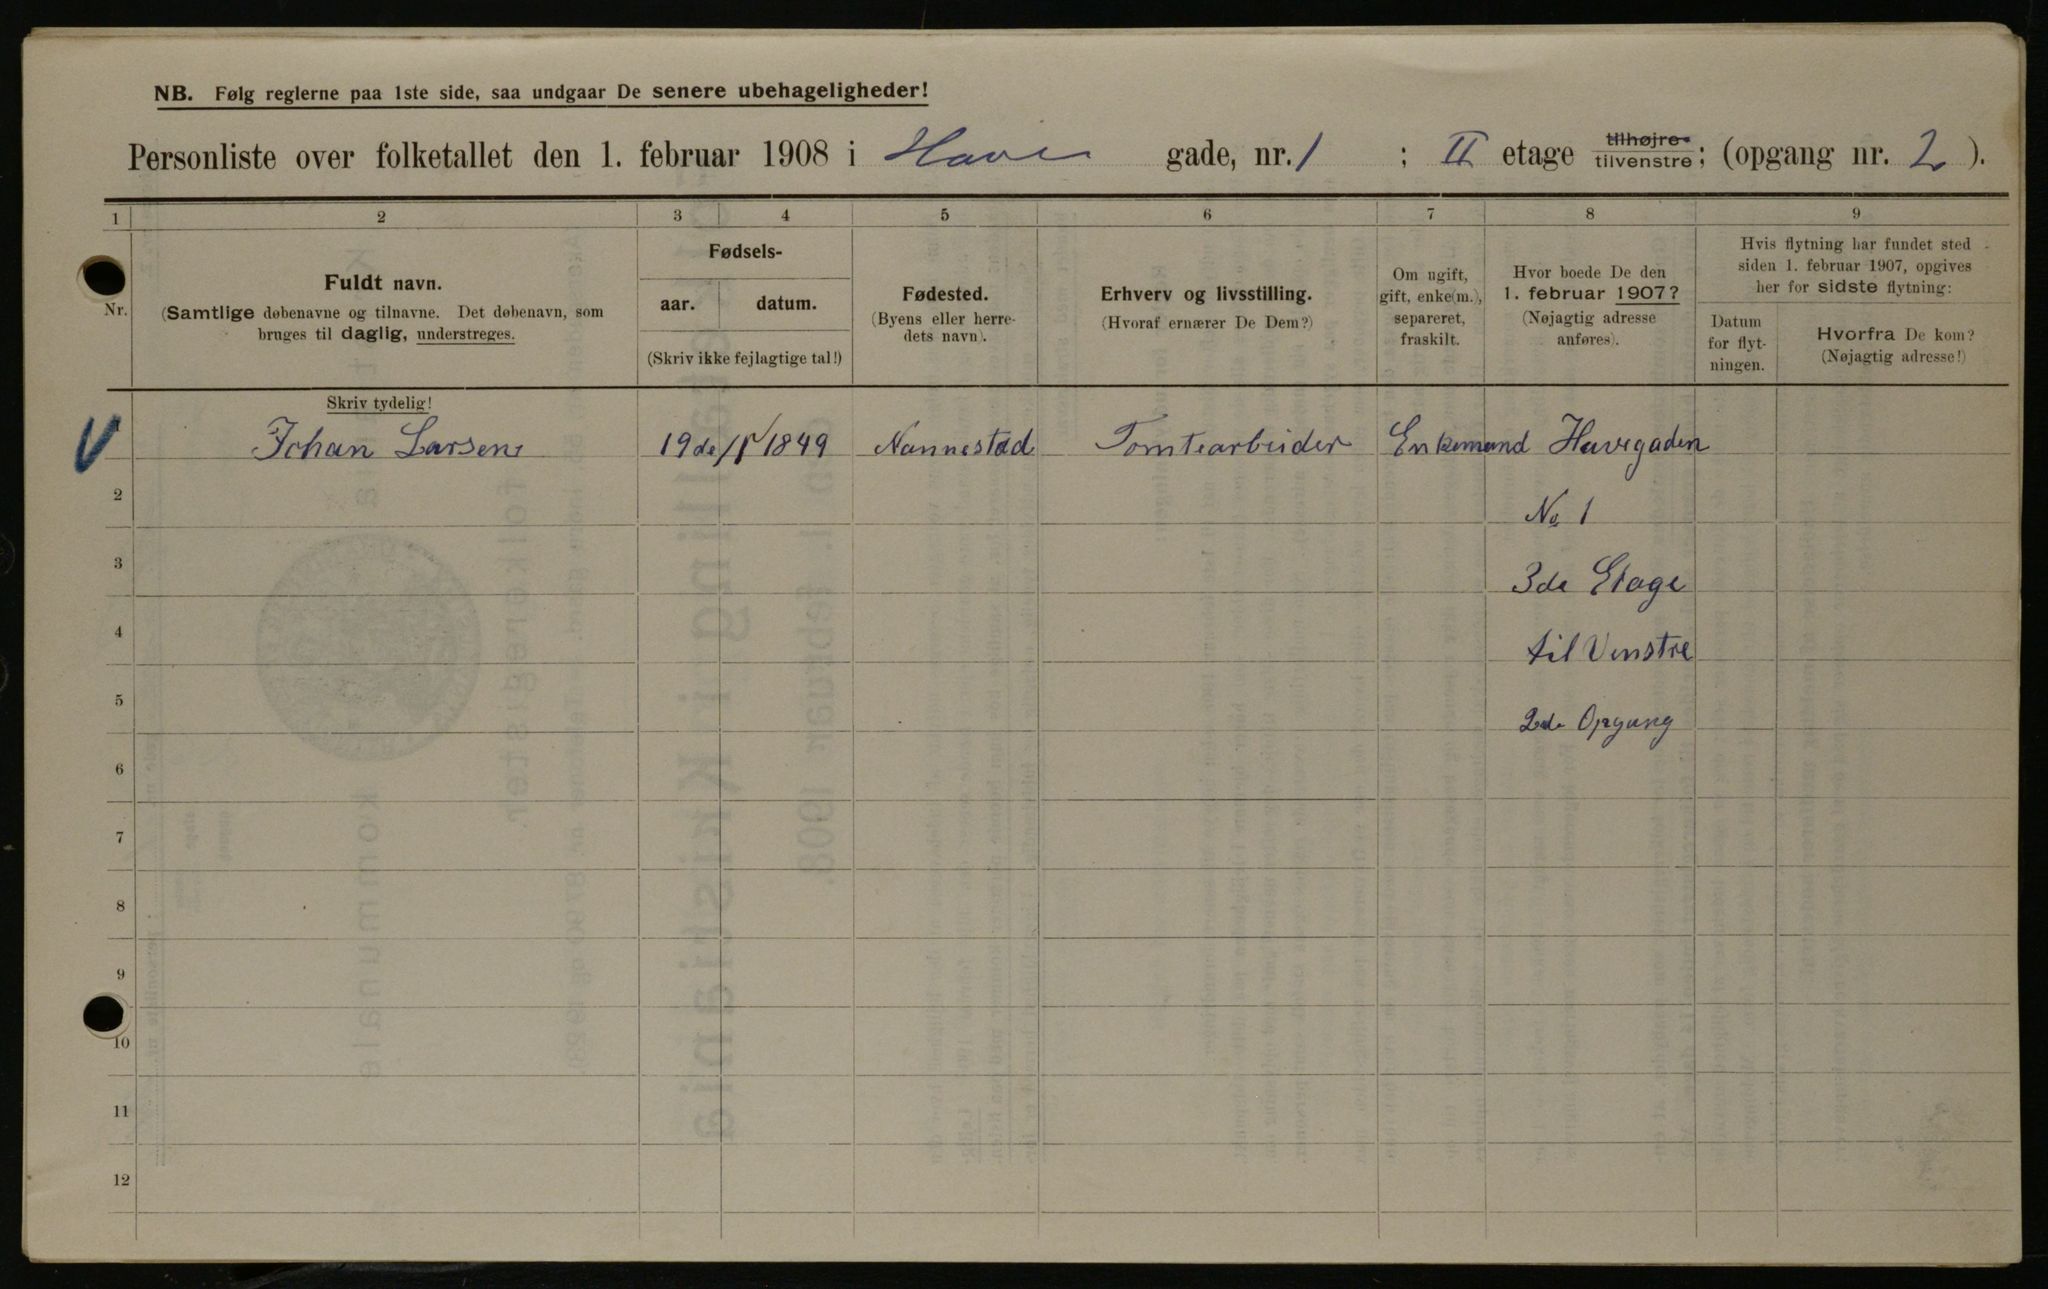 NB. Følg reglerne paa 1ste side, saa undgaar De senere ubehageligheder!
Personliste over folketallet den 1. februar 1908 i Have gade, nr. 1 ; II etage tilhøjre tilvenstre; (opgang nr. 2).
1 2 3 4 5 6 7 8 9
Nr.
Fuldt navn.
(Samtlige døbenavne og tilnavne. Det døbenavn, som
bruges til daglig, understreges.
Fødsels-
aar. datum.
(Skriv ikke fejlagtige tal!)
Fødested.
(Byens eller herre-
dets navn).
Erhverv og livsstilling.
(Hvoraf ernærer De Dem?)
Om ugift,
gift, enke(m.),
separeret,
fraskilt.
Hvor boede De den
1. februar 1907?
(Nøjagtig adresse
anføres).
Hvis flytning har fundet sted
siden 1. februar 1907, opgives
her for sidste flytning:
Datum
for flyt-
ningen.
Hvorfra De kom?
(Nøjagtig adresse!)
Skriv tydelig!
Johan Larsen 19de/1 1849 Nannestad Tomtearbeider Enkemand Havegaden
2 No 1
3 3de Etage
4 til Venstre
5 2de Opgang
6
7
8
9
10
11
12